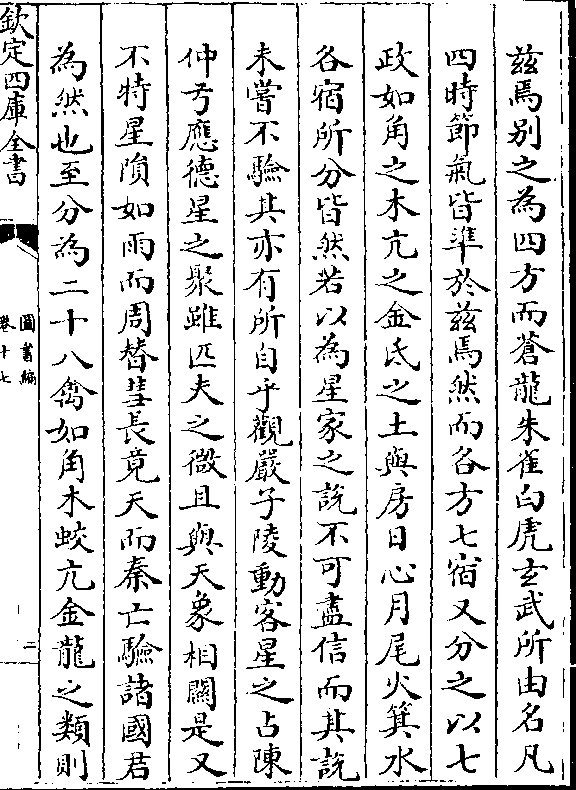 茲焉别之為四方而蒼龍朱雀白虎玄武所由名凡
四時節氣皆準於茲焉然而各方七宿又分之以七
政如角之木亢之金氐之土與房日心月尾火箕水
各宿所分皆然若以為星家之說不可盡信而其說
未嘗不驗其亦有所自乎觀嚴子陵動客星之占陳
仲弓應德星之聚雖匹夫之微且與天象相關是又
不特星隕如雨而周替彗長竟天而秦亡驗諸國君
為然也至分為二十八禽如角木蛟亢金龍之類則
欽定四庫全書
圖書編
卷十七
二